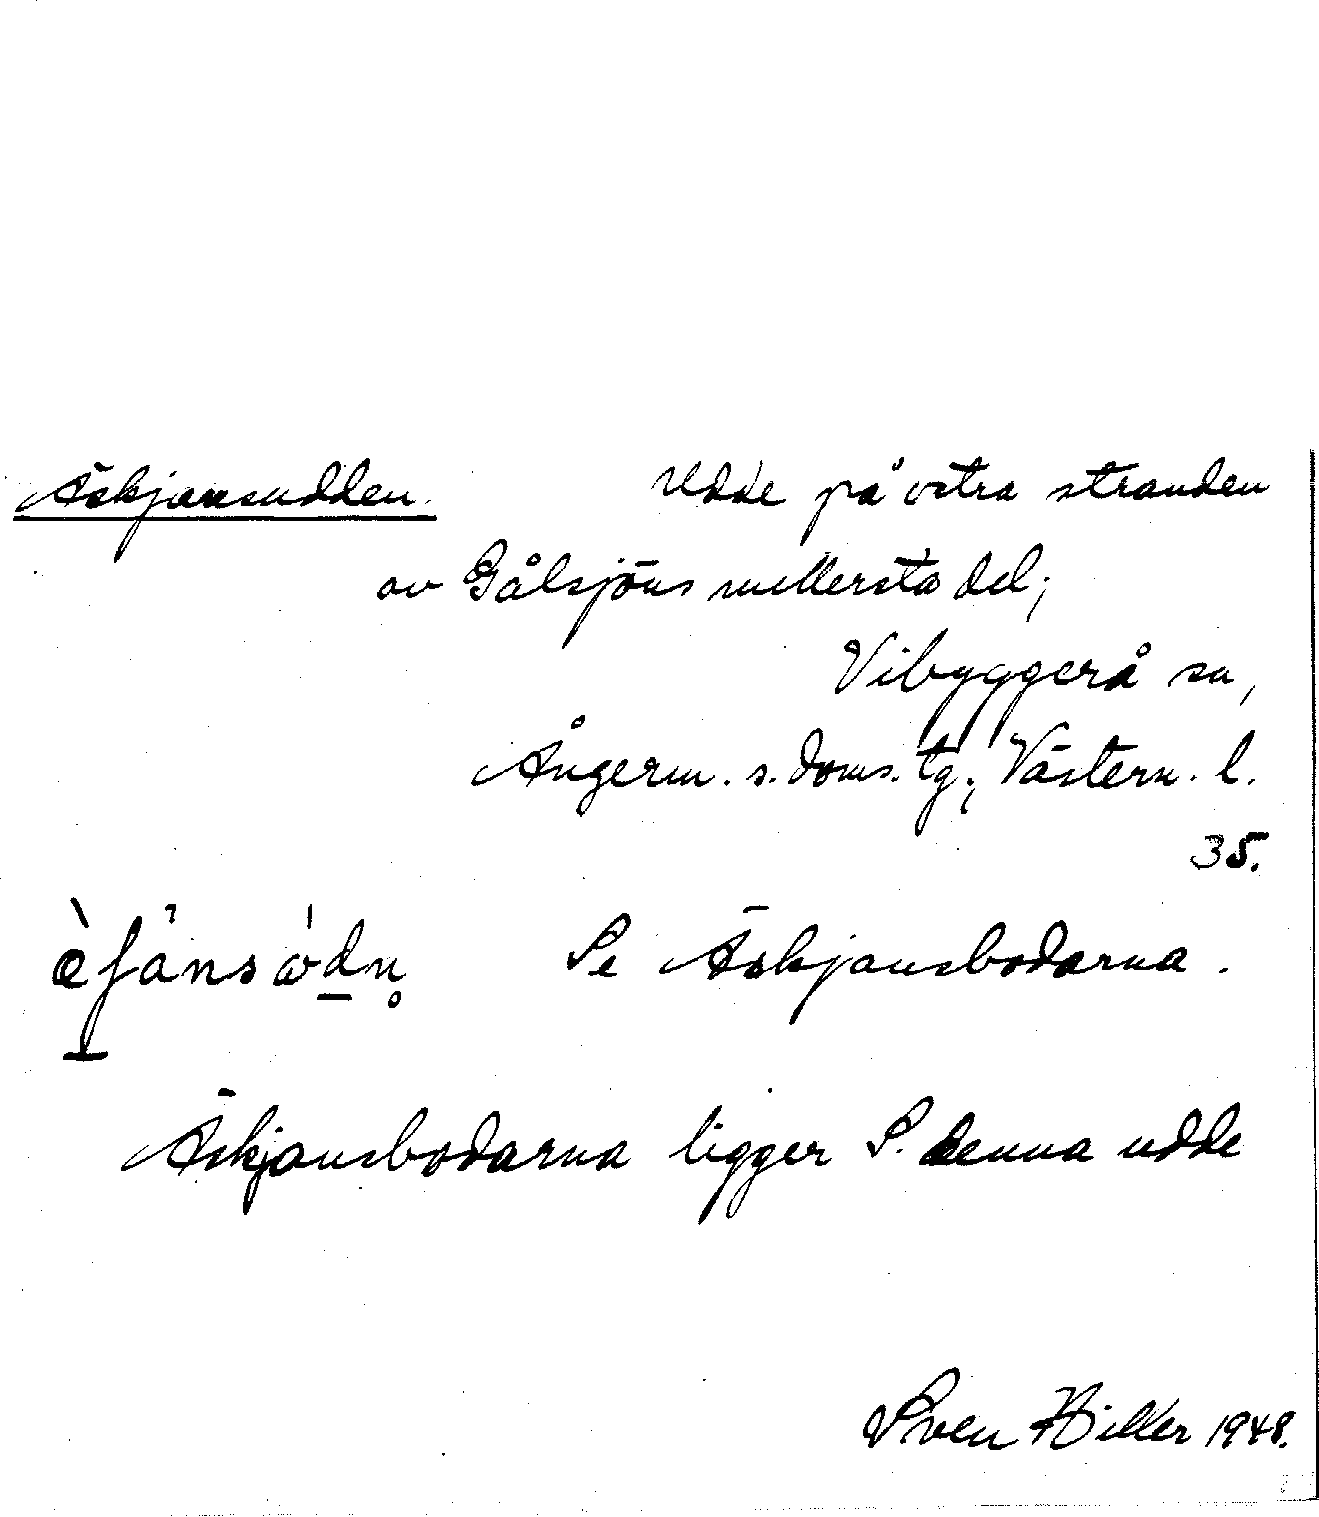 Äskjansudden. Udde på östra stranden
av Gålsjöns mellersta del;
Vibyggerå sn,
Ångerm. s. doms. tg.; Västern. l.
35.
Se Äskjansbodarna.
Äskjansbodarna ligger S. denna udde
Sven Hiller 1948.